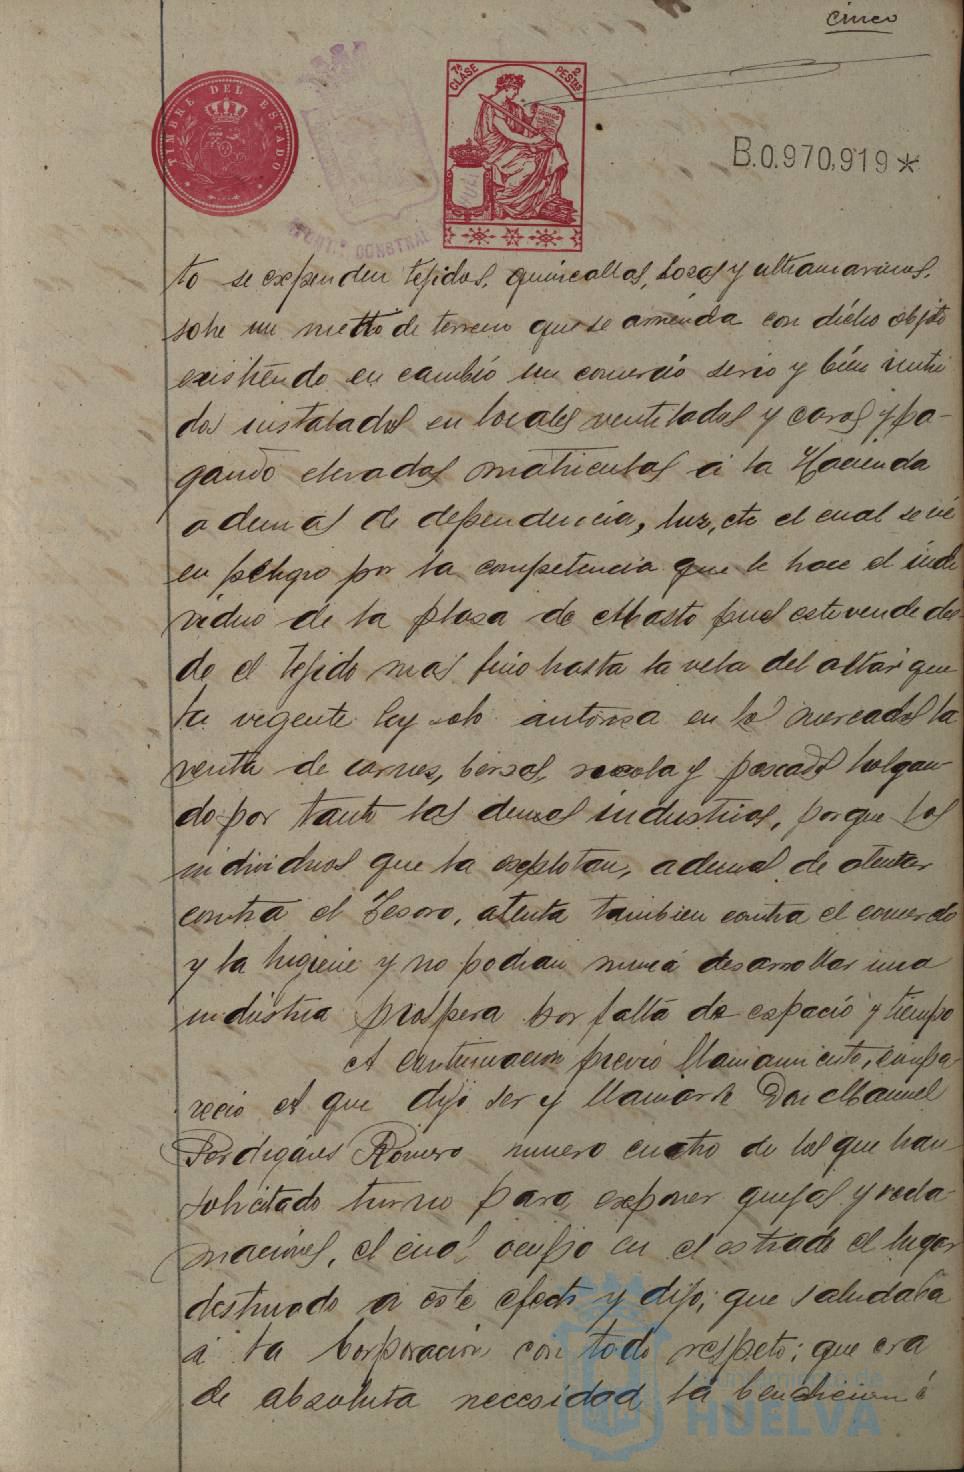 cinco
TIMBRE DEL ESTADO
7ª CLASE
2 PESTAS
B.0.970,919*
AYUNT.º CONSTNAL
to se expenden tejidos, quincallas, lozas y ultramarinos,
sobre un metro de terreno que se arrienda con dicho objeto
existiendo en cambio un comercio serio y bien nutri
dos instalados en locales ventilados y caros y pa-
gando elevadas matriculas a la Hacienda
ademas de dependencia, luz, etc el cual se vé
en peligro por la competencia que le hace el indi
viduo de la plaza de Abasto pues este vende des-
de el tejido mas fino hasta la vela del altar que
la vigente ley solo autoriza en los mercados la
venta de carnes, berzas, recova y pescados holgan-
do por tanto las demas industrias, porque los
individuos que la explotan, ademas de atentar
contra el Tesoro, atenta tambien contra el comercio
y la higiene y no podran nunca desarrollar una
industria prospera por falta de espacio y tiempo
A continuacion previo llamamiento, compa-
recio el que dijo ser y llamarse Don Manuel
Perdigones Romero numero cuatro de los que han
solicitado turno para exponer quejas y recla-
maciones, el cual ocupo en el estrado el lugar
destinado a este efecto y dijo; que saludaba
a la Corporacion con todo respeto; que era
de absoluta necesidad la
Ayuntamiento de
HUELVA